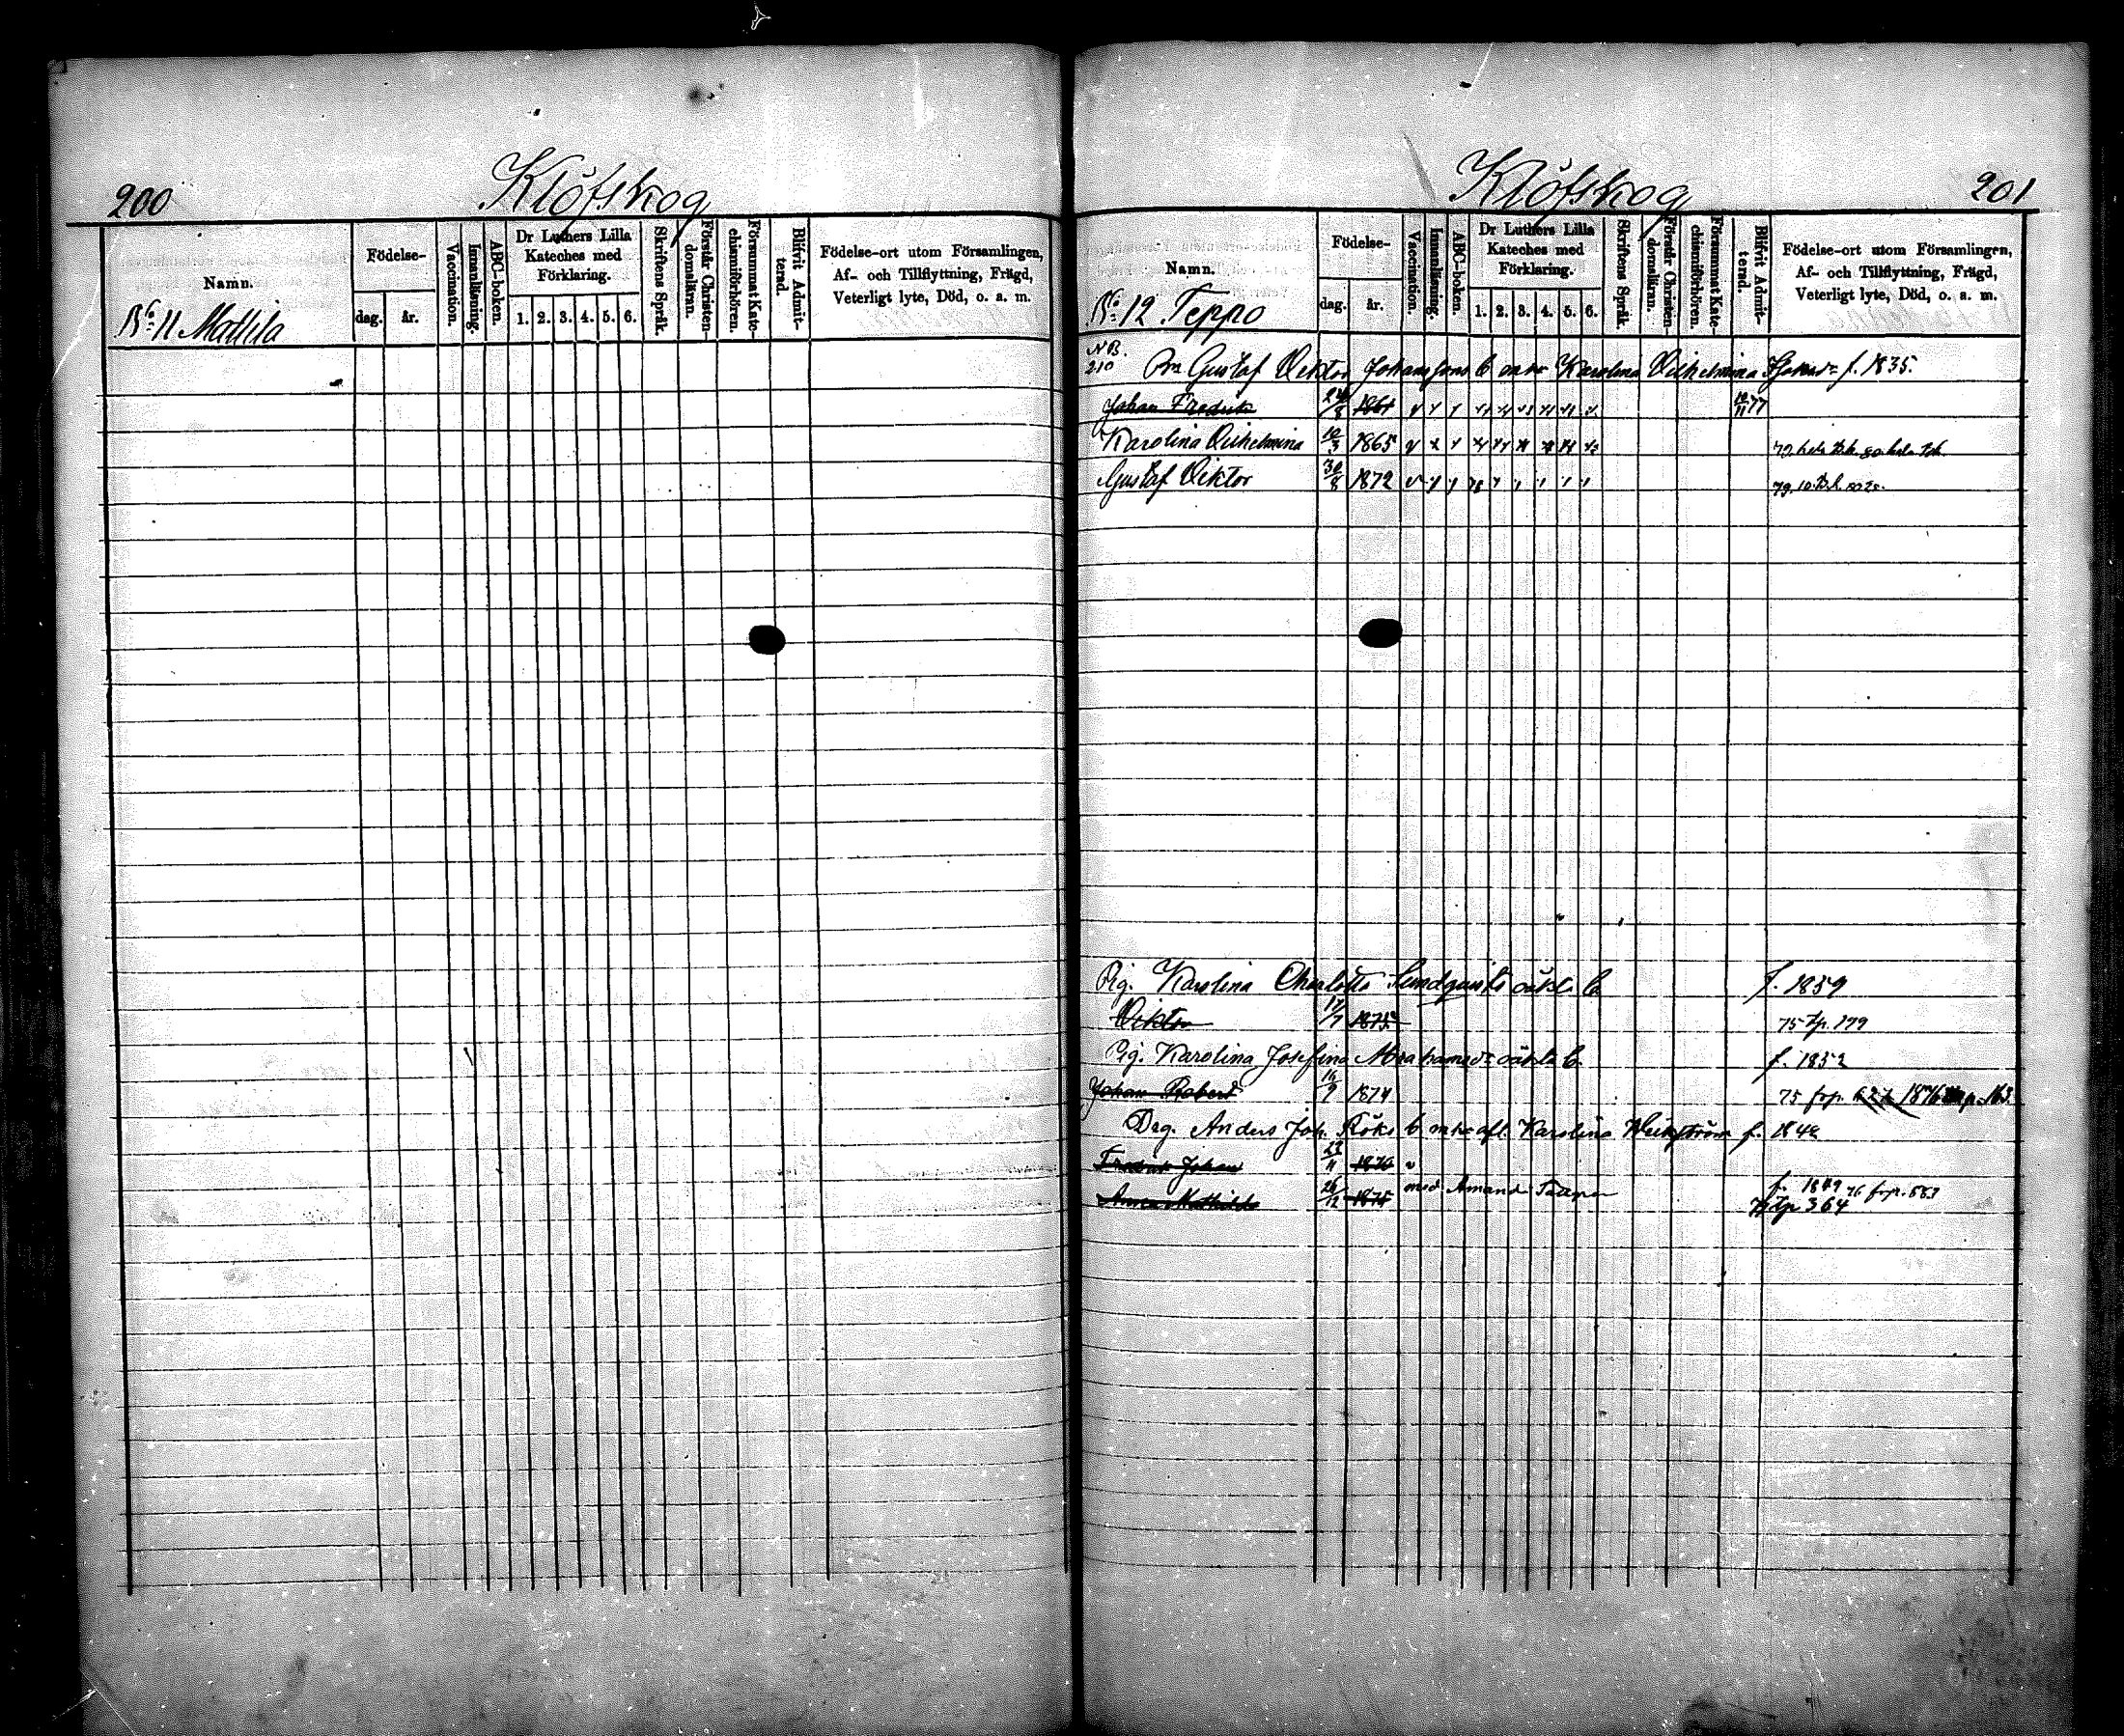 200
Klöfskog
Namn.
Födelse-
dag.
år.
Vaccination.
Innanläsning.
ABC-boken.
Dr Luthers Lilla
Kateches med
Förklaring.
1. 2. 3. 4. 5. 6.
Skriftens Språk.
Förstår Christen-
domsläran.
Försummat Kate-
chismiförhören.
Blifvit Admit-
terad.
Födelse-ort utom Församlingen,
Af- och Tillflyttning, Frägd,
Veterligt lyte, Död, o. a. m.
No 11 Mattila
Klöfskog
201
Namn.
Födelse-
dag.
år.
Vaccination.
Innanläsning.
ABC-boken.
Dr Luthers Lilla
Kateches med
Förklaring.
1. 2. 3. 4. 5. 6.
Skriftens Språk.
Förstår Christen-
domsläran.
Försummat Kate-
chismiförhören.
Blifvit Admit-
terad.
Födelse-ort utom Församlingen,
Af- och Tillflyttning, Frägd,
Veterligt lyte, Död, o. a. m.
No 12 Teppo
NB.
210 Gustaf Viktor Johanssons b Karolina Vilhelmina f. 1835.
Johan Fredrik 24/8 1861 10/11 77
Karolina Vilhelmina 10/3 1865
Gustaf Viktor 30/8 1872
Pig. Karolina Charlotta Sundqvists oäkta b f. 1859
Viktor 17/7 1875 75 Tp. 179
Pig. Karolina Josefina Abrahamsdr oäkta b f. 1852
Johan Robert 16/9 1874 75
Drg. Anders Joh. Röks b Karolina f. 1842
Fredrik Johan 22/11 1870
med Amanda f. 1849
Anna Mathilda 26/12 1875 Tp 364